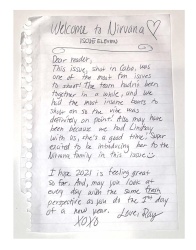 Welcome to Nirvana
ISSUE ELEVEN
Dear reader,
This issue, shot in Cabo, was
one of the most fun issues
to shoot! The team hadn't been
together in a while, and we
had the most insane tents to
shoot on so the vibe was
definitely on point! Also may have
been because we had Lindsay
with us, she's a good time! Super
excited to be introducing her to the
Nirvana family in this issue
I hope 2021 is feeling great
so far. And, may you look at
every day with the same
perspective as you do the 1st day
of a new year.
Love, Ray
XOXO